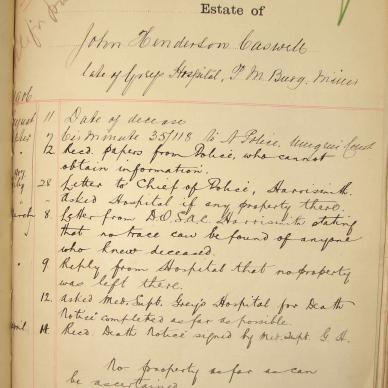 Estate of
John Henderson Caswell
late of Grey's Hospital, P. M. Burg.
11 Date of decease
7 Cir. Minute 357/118 to N. Police,
12. Recd. papers from Police, who cannot
obtain information.
28 Letter to Chief of Police, Harrismith.
" Asked Hospital if any property there.
8. Letter from D.O. S.A.C. Harrismith stating
that no trace can be found of anyone
who knew deceased.
" 9 Reply from Hospital that no property
was left there.
12. Asked Med. Supt. Grey's Hospital for Death
Notice completed as far as possible.
14. Recd. Death Notice signed by Med. Supt. G. H.
No property as far as can
be ascertained